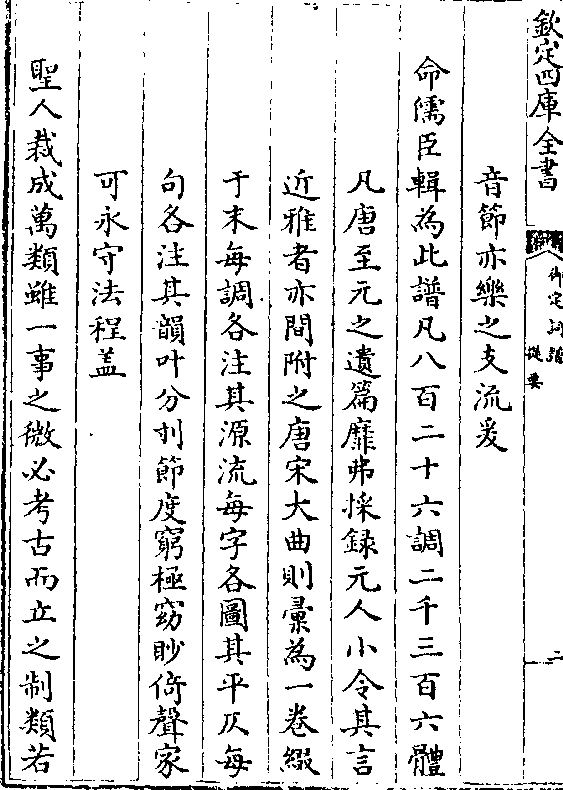 欽定四庫全書
御定詞譜
提要
二
音節亦樂之支流爰
命儒臣輯為此譜凡八百二十六調二千三百六體
凡唐至元之遺篇靡弗採録元人小令其言
近雅者亦間附之唐宋大曲則彚為一卷綴
于末每調各注其源流每字各圖其平仄每
句各注其韻叶分刌節度窮極窈眇倚聲家
可永守法程蓋
聖人裁成萬類雖一事之微必考古而立之制類若